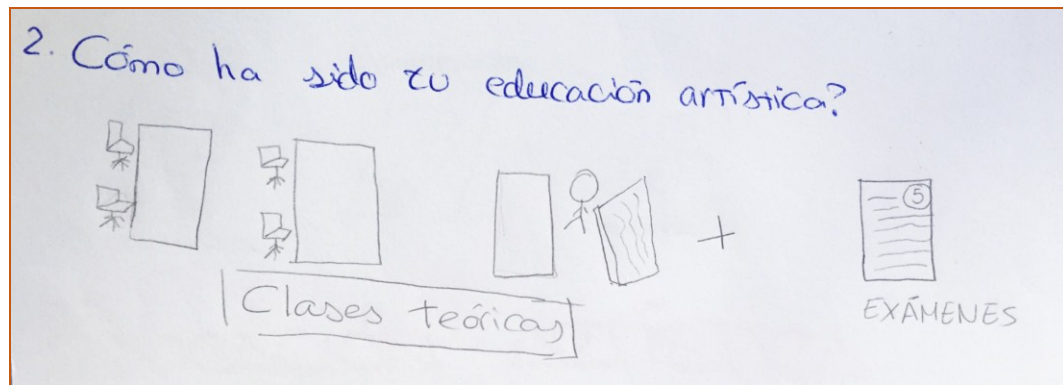 2. Cómo ha sido tu educación artística?
5
Clases teóricas
EXÁMENES